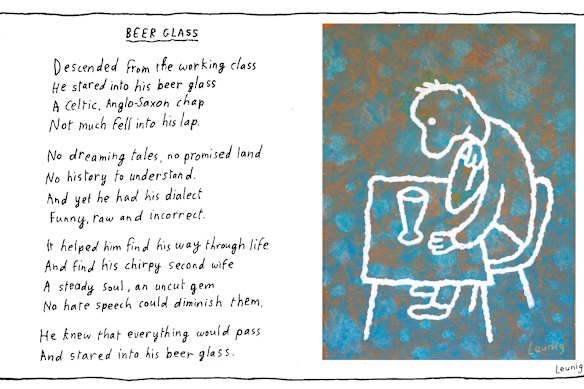 BEER GLASS
Descended from the working class
He stared into his beer glass
A Celtic, Anglo-Saxon chap
Not much fell into his lap.
No dreaming tales, no promised land
No history to understand.
And yet he had his dialect
Funny, raw and incorrect.
It helped him find his way through life
And find his chirpy second wife
A steady soul, an uncut gem
No hate speech could diminish them.
He knew that everything would pass
And stared into his beer glass.
Leunig
Leunig